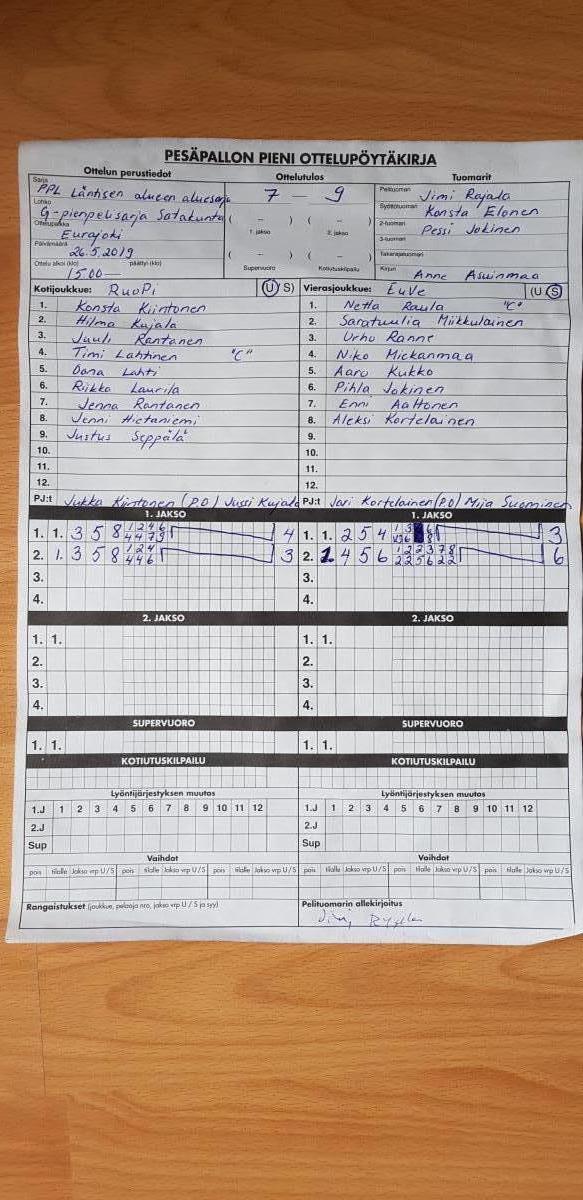 PESÄPALLON PIENI OTTELUPÖYTÄKIRJA
Ottelun perustiedot
Sarja
PPL Läntisen alueen aluesarja
Lohko
G-pienpelisarja Satakunta
Ottelupaikka
Eurajoki
Päivämäärä
26.5.2019
Ottelu alkoi (klo) päättyi (klo)
15.00 —
Ottelutulos
7 — 9
( – ) ( – )
1. jakso 2. jakso
( – ) ( – )
Supervuoro Kotiutuskilpailu
Tuomarit
Pelituomari Jimi Rajala
Syöttötuomari Konsta Elonen
2-tuomari Pessi Jokinen
3-tuomari
Takarajatuomari
Kirjuri Anne Asuinmaa
Kotijoukkue: RuoPi (U S)
1. Konsta Kiintonen
2. Hilma Kujala
3. Juuli Rantanen
4. Timi Lahtinen "C"
5. Oona Lahti
6. Riikka Laurila
7. Jenna Rantanen
8. Jenni Hietaniemi
9. Justus Seppälä
10.
11.
12.
PJ:t Jukka Kiintonen (PO) Jussi Kujala
Vierasjoukkue: EuVe (U S)
1. Netta Raula "C"
2. Saratuulia Miikkulainen
3. Urho Ranne
4. Niko Mickanmaa
5. Aaro Kukko
6. Pihla Jokinen
7. Enni Aaltonen
8. Aleksi Kortelainen
9.
10.
11.
12.
PJ:t Jari Kortelainen (PO) Mija Suominen
1. JAKSO
1. 1. 3 5 8 1 2 4 6 4
4 4 7 9
2. 1. 3 5 8 1 2 4 3
4 4 6
3.
4.
1. JAKSO
1. 1. 2 5 4 1 3 6 3
2. 1 4 5 6 1 2 2 3 7 8 6
2 2 5 6 2 2
3.
4.
2. JAKSO
1. 1.
2.
3.
4.
2. JAKSO
1. 1.
2.
3.
4.
SUPERVUORO
1. 1.
SUPERVUORO
1. 1.
KOTIUTUSKILPAILU
KOTIUTUSKILPAILU
Lyöntijärjestyksen muutos
1.J 1 2 3 4 5 6 7 8 9 10 11 12
2.J
Sup
Lyöntijärjestyksen muutos
1.J 1 2 3 4 5 6 7 8 9 10 11 12
2.J
Sup
Vaihdot
pois tilalle Jakso vrp U/S pois tilalle Jakso vrp U/S
Vaihdot
pois tilalle Jakso vrp U/S pois tilalle Jakso vrp U/S
Rangaistukset (joukkue, pelaaja nro, jakso vrp U / S ja syy)
Pelituomarin allekirjoitus